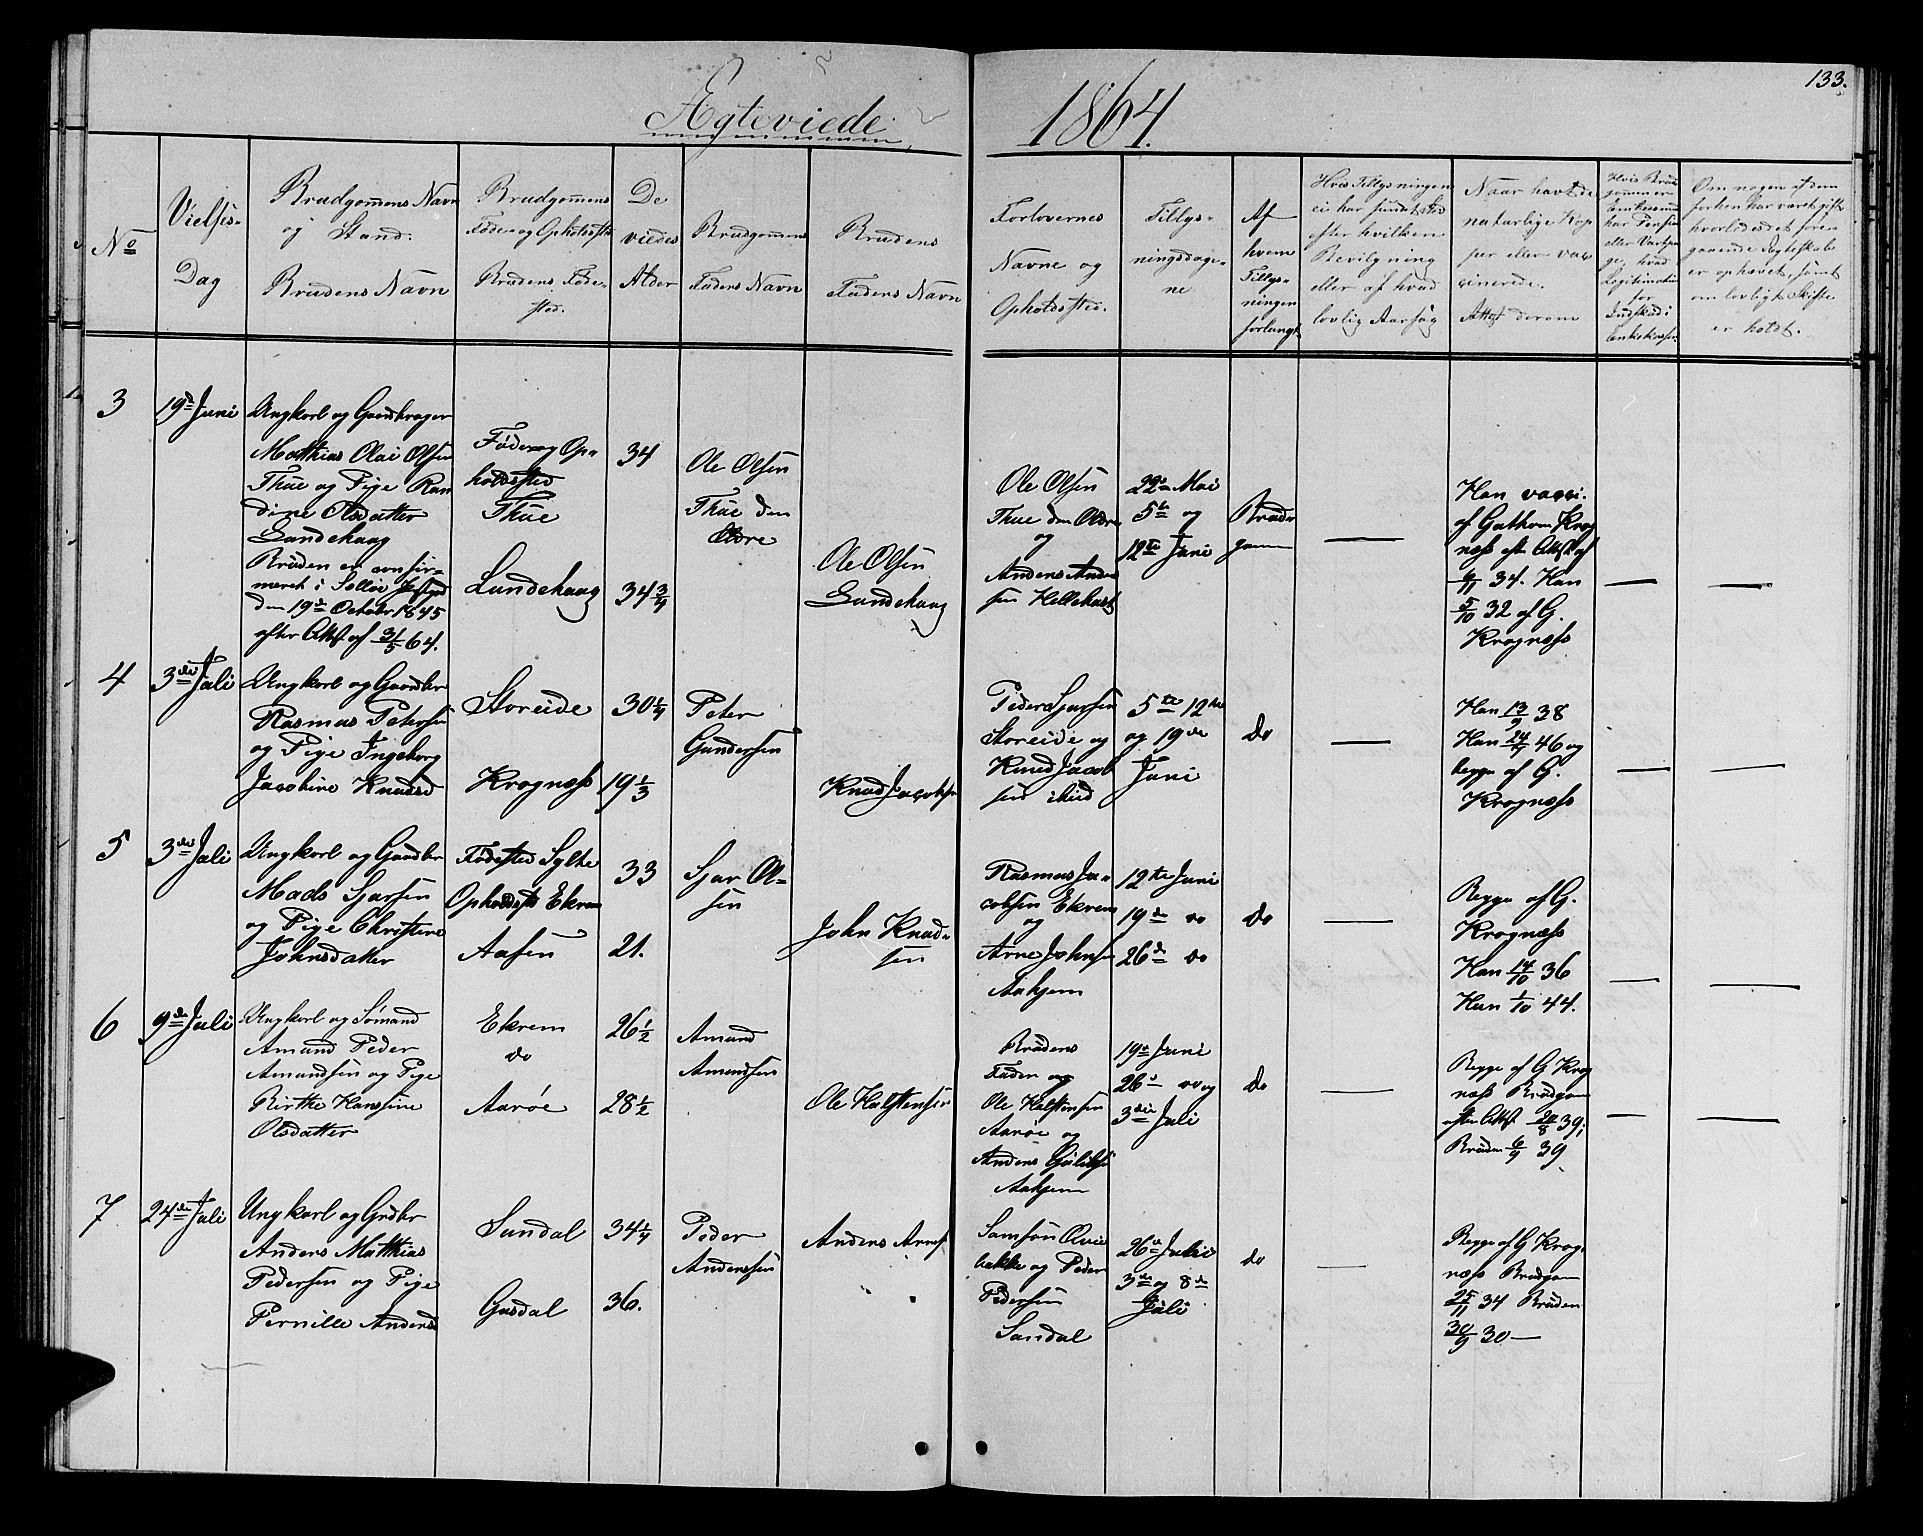 133.
Ægteviede 1864.
No
Vielses-
Dag
Brudgommens Navn
og Stand.
Brudens Navn
Brudgommens
Føde- og Opholdssted
Brudens Føde-
sted.
De
viedes
Alder
Brudgommens
Faders Navn
Brudens
Faders Navn
Forlovernes
Navne og
Opholdssted.
Tillys-
ningsdage-
ne
Af
hvem
Tillys-
ningen
forlangt
Hvis Tillysningen
ei har fundet Sted
efter hvilken
Bevilgning
eller af hvad
lovlig Aarsag
Naar havt de
naturlige Kop
per eller vac
cinerede.
Attest derom
Hvis Brud
gommen er
Enkemand
har Pension
hvad
Legitimation
for
Indskud i
Enkekassen
Om nogen af dem
forhen har været gift
hvorledes det fore-
gaaende Ægteskab
er ophævet, samt
om lovligt Skifte
er holdt.
3
19de Juni
Ungkarl og Gaardbruger
Mathias Olai Olsen
Thue og Pige Ran
dine Olsdatter
Lundehaug
Bruden er confir-
meret i
den 19de October 1845
efter Attest af 31/5 64.
Føde og Op-
holdssted
Thue
Lundehaug
34
34 3/4
Ole Olsen
Thue den
Ældre
Ole Olsen
Lundehaug
Ole Olsen
Thue den Ældre
og
Anders Ander
sen
22de Mai
5te og
12te Juni
Brud
gommen
—
Han vacci.
af Guthorm Krog
næss efter Attest af
6/11 34. Hun
5/10 32 af G.
Krognæss
—
—
4
3die Juli
Ungkarl og Gaardbr
Rasmus Petersen
og Pige Ingeborg
Jacobine Knudsd
Storeide
Krognæss
30 1/4
19 1/3
Peter
Gundersen
Knud Jacobsen
Peder Sjursen
Storeide og
Knud Jacob
sen ibid
5te 12te
og 19de
Juni
do
—
Han 13/9 38
Hun 24/7 46 og
begge af G.
Krognæss
—
—
5
3die Juli
Ungkarl og Gaardbr
Mads Sjursen
og Pige Christine
Johnsdatter
Fødested Sylte
Opholdsst Ekrem
Aasen
33
21.
Sjur Ol-
sen
John Knud-
sen
Rasmus Ja-
cobsen Ekrem
og
Arne Johnsen
Aahjem
12te Juni
19de do
26de do
do
—
Begge af G.
Krognæss
Han 14/10 36
Hun 1/10 44.
—
—
6
9de Juli
Ungkarl og Sømand
Amund Peder
Amundsen og Pige
Birthe Hansine
Olsdatter
Ekrem
do
Aarøe
26 1/2
28 1/2
Amund
Amundsen
Ole Halstensen
Brudens
Fader og
Ole Halstensen
Aarøe og
Anders
Aahjem
19de Juni
26de do og
3die Juli
do
—
Begge af G Krog
næss Brudgom
efter Attest 20/8 39;
Bruden 6/9 39
—
—
7
24de Juli
Ungkarl og Grdbr
Anders Mathias
Pedersen og Pige
Pernille Andersd
Sundal
Gusdal
34 1/4
36.
Peder
Anderssen
Anders Arnes
Samson
bakke og Peder
Pedersen
Sundal
26de Julie
3die og 8de
Juli
do
—
Begge af G Krog
næss Brudgom
25/11 34 Bruden
30/9 30 —